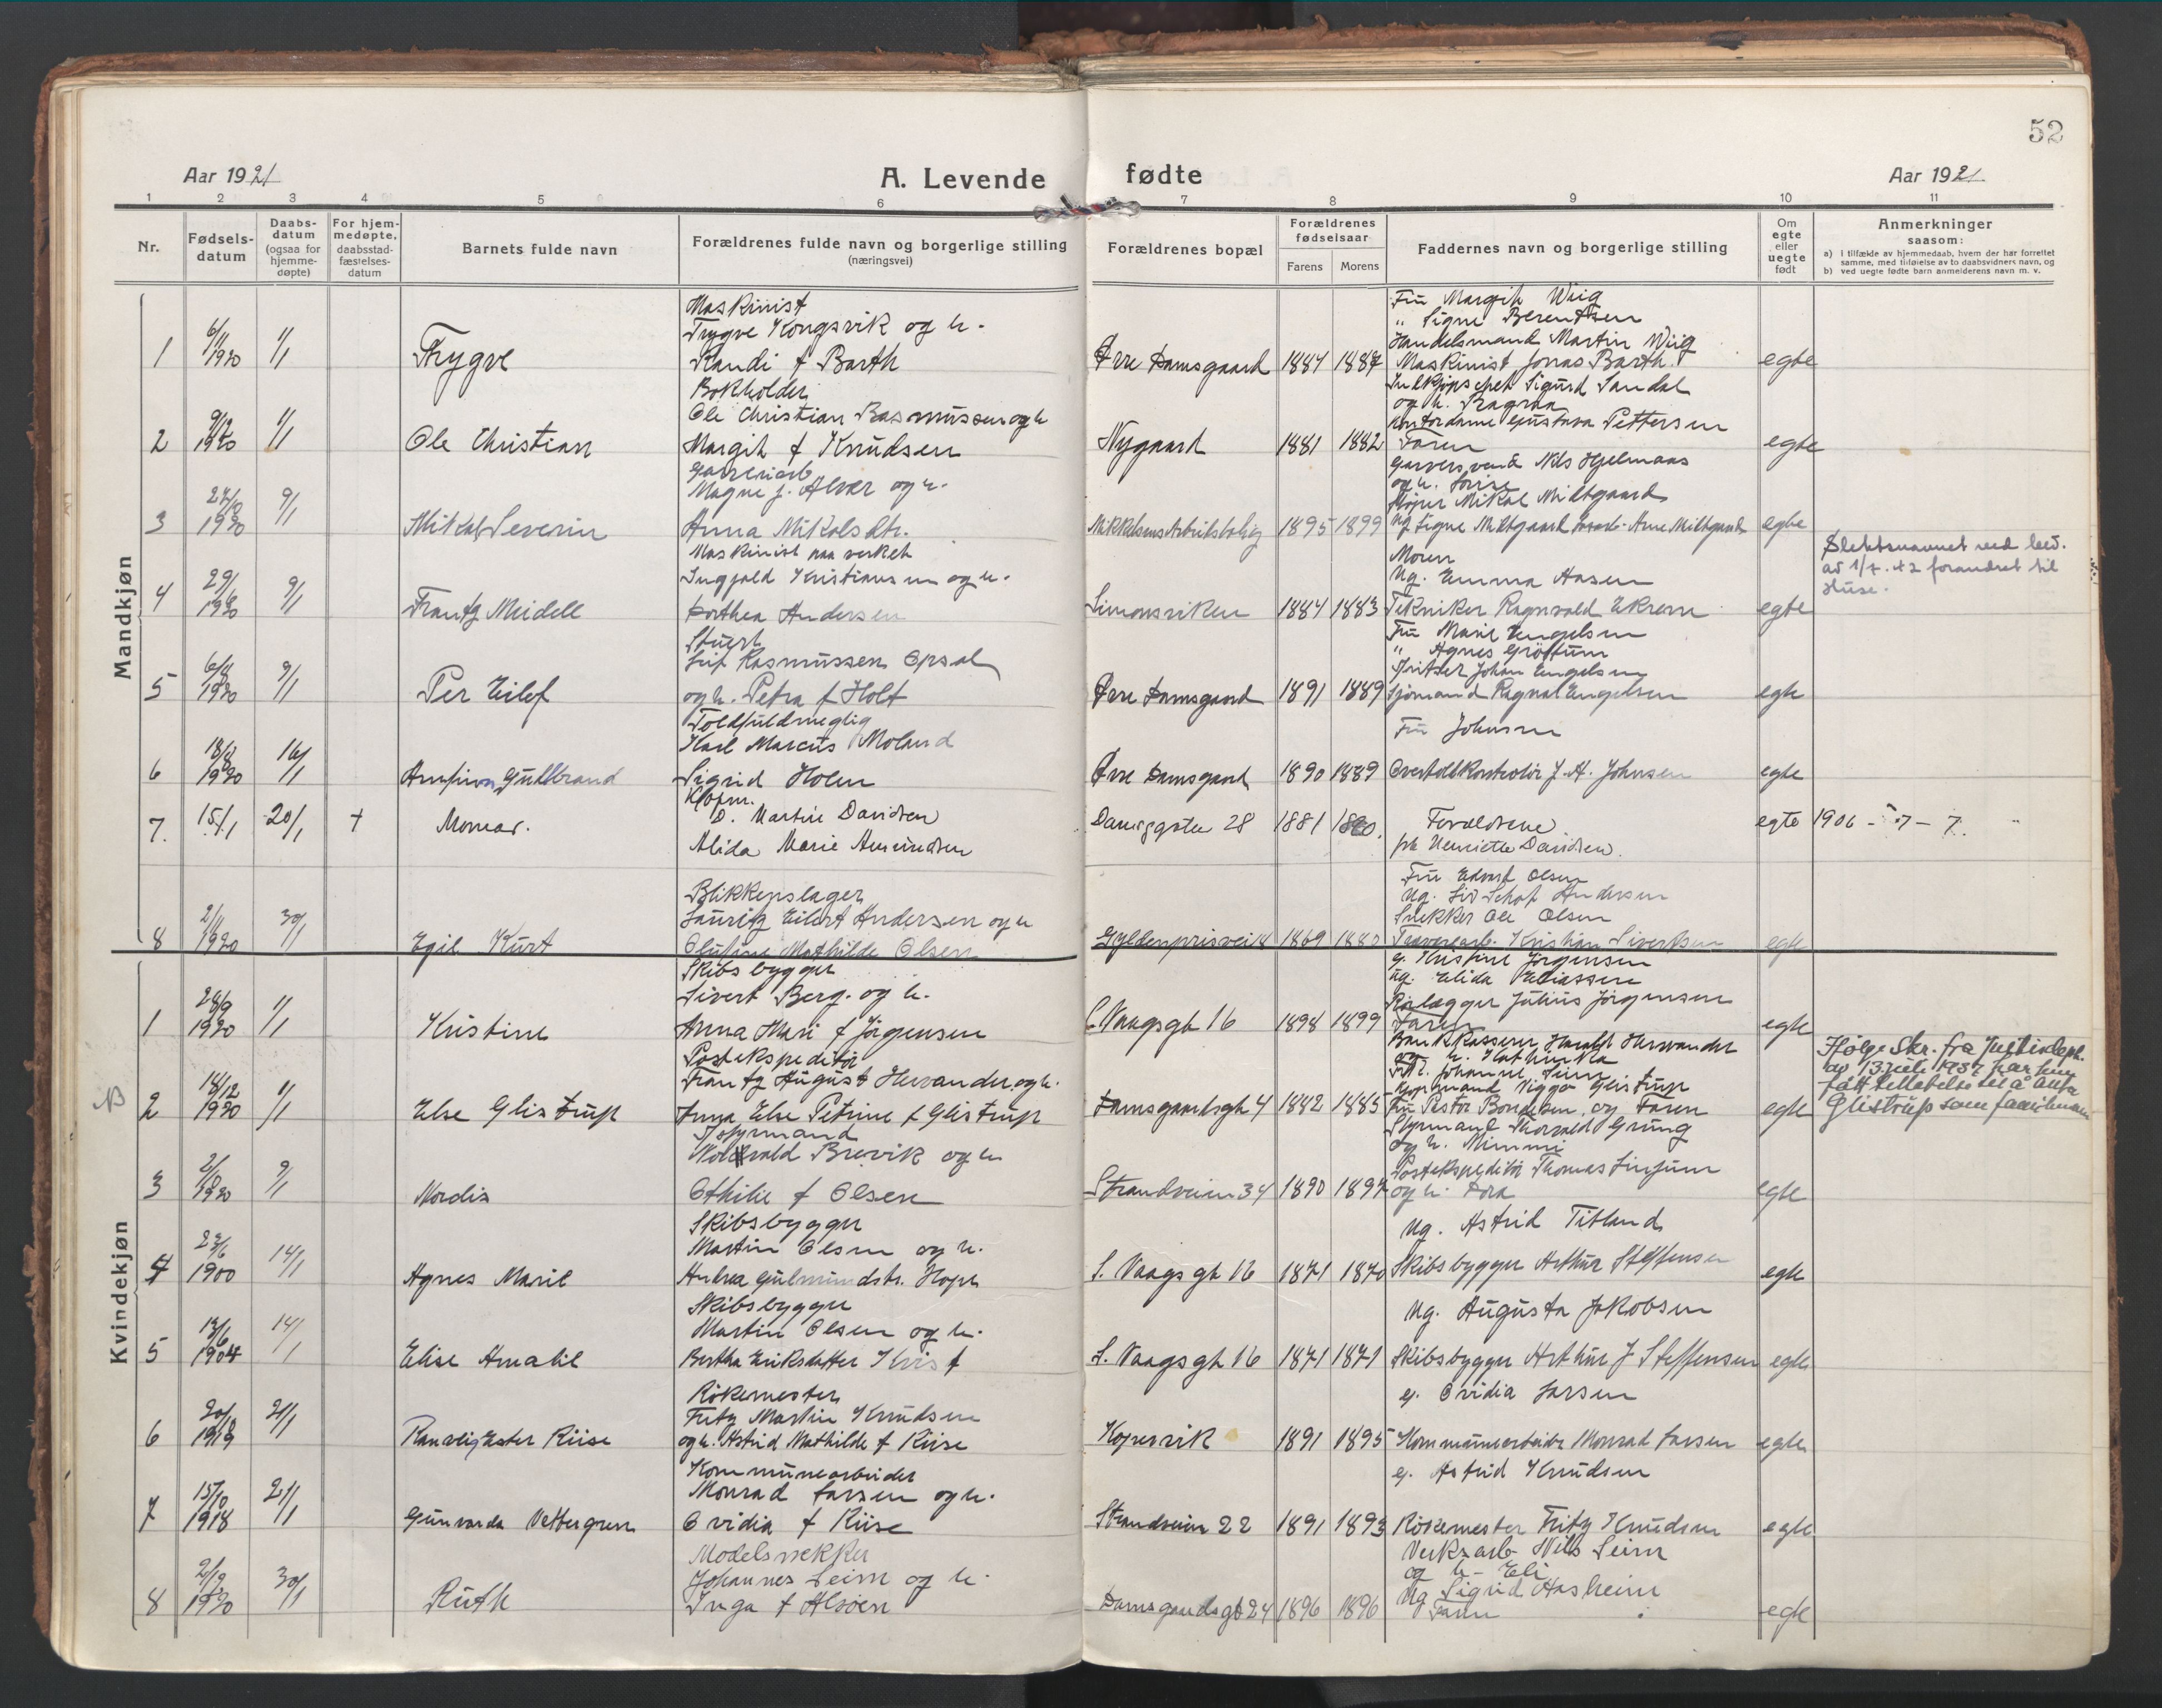 52
Aar 1921
A. Levende fødte
Aar 1921
1 2 3 4 5 6 7 8 9 10 11
Nr.
Fødsels-
datum
Daabs-
datum
(ogsaa for
hjemme-
døpte)
For hjem-
medøpte,
daabsstad-
fæstelses-
datum
Barnets fulde navn
Forældrenes fulde navn og borgerlige stilling
(næringsvei)
Forældrenes bopæl
Forældrenes
fødselsaar
Farens
Morens
Faddernes navn og borgerlige stilling
Om
egte
eller
uegte
født
Anmerkninger
saasom:
a) I tilfælde av hjemmedaab, hvem der har forrettet
samme, med tilføielse av to daabsvidners navn, og
b) ved uegte fødte barn anmelderens navn m. v.
Mandkjøn
1 6/11 1920 1/1 Trygve
Maskinist
Trygve Kongsvik og h.
Randi f Barth
Øvre Damsgaard 1884 1887
Fru Margith Wiig
" Signe Berentsen
Handelsmand Martin Wiig
Maskinist Jonas Barth
egte
2 1920 1/1 Ole Christian
Bokholder
Ole Christian Rasmussen og h
Margith f Knudsen
Nygaard 1881 1882
Sigurd Sandal
og h. Ragna
Kontordame Gustava Pettersen
Faren
egte
3 1920 9/1 Mikal Severin
Magne J. Alver og h.
Anna Mikalsdtr.
Mikkelsens Arbeiderbolig 1895 1899
Nils Hjelmaas
og h.
Mikal Mildtgaard
Ug Signe Mildtgaard Arne Mildtgaard
egte
4 1920 9/1 Frantz Meidell
Maskinist paa verket
Ingjald Kristiansen og h.
Dorthea Andersen
Simonsviken 1884 1883
Moren
Ug. Emma Aasen
Tekniker Ragnvald Ekrem
egte
Slektsnavnet ved bev.
av 1/7. 42 forandret til
Huse.
5 1920 9/1 Per Eilef
Stuert
Leif Rasmussen Opsal
og h. Petra f Holt
Øvre Damsgaard 1891 1889
Fru Marie Engelsen
" Agnes Grøttum
Johan Engelsen
Sjømand Ragnal Engelsen
egte
6 1920 16/1 Gudbrand
Toldfuldmegtig
Karl Marcus Moland
Sigrid Holm
Øvre Damsgaard 1890 1889
Fru Johnsen
Overtoldkontrolør J. A. Johnsen
egte
7. 15/1 20/1 + Monrar.
D. Martin Davidsen
Alida Marie Amundsen
Damsggaten 28 1881 1880.
Forældrene
frk Henriette Davidsen.
egte 1906 - 7 - 7.
8 2/11 1920 30/1 Egil Kurt
Blikkenslager
Lauritz Eilert Andersen og h
Olufine Mathilde Olsen
Gyldenprisvei 1869 1880
Fru Edvart Olsen
Ug. Andersen
Snekker Ole Olsen
Kristian Sivertsen
egte
Kvindekjøn
1 28/9 1920 1/1 Kristine
Skibsbygger
Sivert Berg. og h.
Anna Mari f Jørgensen
S. Vaagsgt 16 1898 1899
g. Kristine Jørgensen
ug. Elida Eliassen
Rørlægger Julius Jørgensen
Faren
egte
2 18/12 1920 1/1 Else Glistrup
Postekspeditør
Frantz August Hervander og h.
Anna Else Petrine f Glistrup
Damsgaardsgt 4 1882 1885
Bankkasserer Harald Hervander
og h. Kathinka
Viggo Glistrup
Fru Pastor Bondesen, og Faren
egte
Ifølge skr. fra Justisdep.
av 13 juli 1937 har hun
fått tillatelse til å anta
Glistrup som familienavn
3 1920 9/1 Nordis
Styrmand
Norvald Brevik og h
Othilie f Olsen
Strandveien 34 1890 1897
Styrmand Thorvald Grung
og h. Mimmi
Postekspeditør Thomas
og h. Dora
egte
4 23/6 1900 14/1 Agnes Marie
Skibsbygger
Martin Olsen og h.
Andrea Gulmundsdtr. Hope
S. Vaagsgt 16 1871 1870
Ug. Astrid Titland
Skibsbygger Arthur Steffensen
egte
5 13/6 1904 14/1 Elise Amalie
Skibsbygger
Martin Olsen og h.
Bertha Eriksdatter Kvist
S. Vaagsgt 16 1871 1871
Ug. Augusta Jakobsen
Skibsbygger Arthur J Steffensen
egte
6 1919 21/1 Ranveig Ester Riise
Røkemester
Fritz Martin Knudsen
og h. Astrid Mathilde f Riise
Kopervik 1891 1895
g. Ovidia Larsen
Kommunearbeider Monrad Larsen
egte
7 15/10 1918 21/1 Gunvarda Vettergren
Kommunearbeider
Monrad Larsen og h.
Ovidia f Riise
Strandveien 22 1891 1893
g. Astrid Knudsen
Røkemester Fritz Knudsen
egte
8 1920 30/1 Ruth
Modelsnekker
Johannes Seim og h.
Inga f Alsøen
Damsgaardsgt 24 1896 1896
Verksarb Nils Seim
og h. Eli
Ug Sigrid Aasheim
Faren
egte